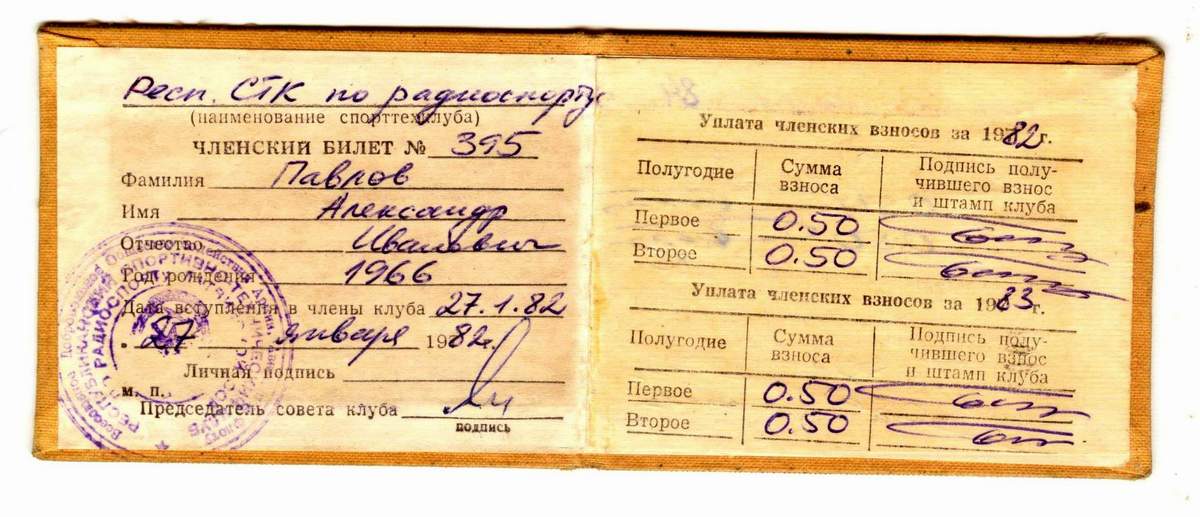 Респ. СТК по радиоспорту
(наименование спорттехклуба)
ЧЛЕНСКИЙ БИЛЕТ № 395
Фамилия Павлов
Имя Александр
Отчество Иванович
Год рождения 1966
Дата вступления в члены клуба 27.1.82
"27" января 1982г.
Личная подпись
м. п.
Председатель совета клуба
подпись
Уплата членских взносов за 1982г.
Полугодие Сумма взноса Подпись получившего взнос и штамп клуба
Первое 0.50
Второе 0.50
Уплата членских взносов за 1983г.
Полугодие Сумма взноса Подпись получившего взнос и штамп клуба
Первое 0.50
Второе 0.50